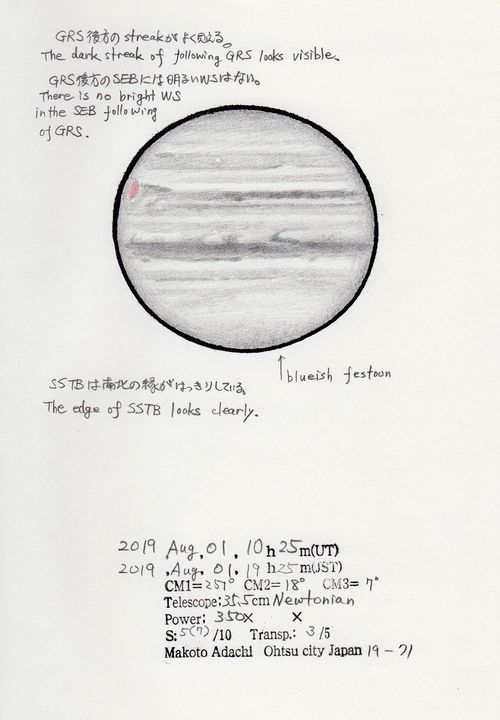 GRS後方のstreakがよく見える。
The dark streak of following GRS looks visible.
GRS後方のSEBには明るいWSはない。
There is no bright WS
in the SEB following
of GRS.
↑blueish festoon
SSTBは南北の縁がはっきりしている。
The edge of SSTB looks clearly.
2019 Aug. 01, 10h25m(UT)
2019 .Aug. 01. 19h25m(JST)
CM1=257° CM2=18° CM3=7°
Telescope:35.5cm Newtonian
Power: 350X X
S:5(7)/10 Transp.: 3/5
Makoto Adachi Ohtsu city Japan 19-71